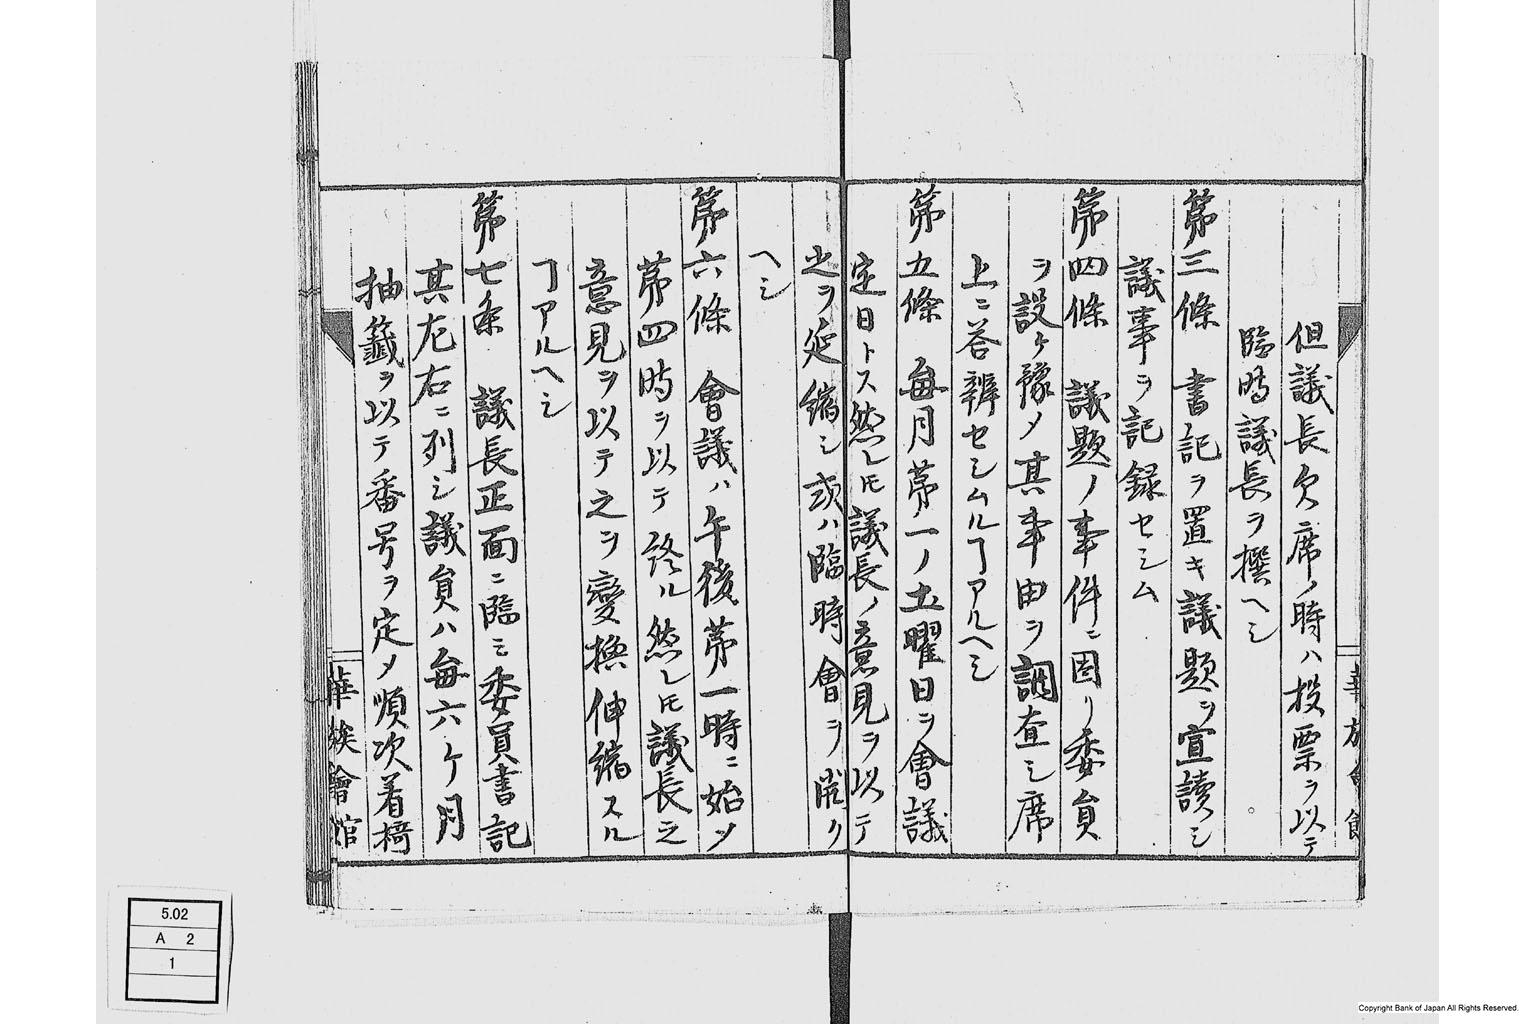 但議長欠席ノ時ハ投票ヲ以テ
臨時議長ヲ撰ヘシ
第三條　書記ヲ置キ議題ヲ宣讀シ
議事ヲ記録セシム
第四條　議題ノ事件ニ因リ委員
ヲ設ケ豫メ其事由ヲ調査シ席
上ニ答辨セシムルヿアルヘシ
第五條　毎月第一ノ土曜日ヲ會議
定日トス然レ𪜈議長ノ意見ヲ以テ
之ヲ延縮シ或ハ臨時會ヲ開ク
ヘシ
第六條　會議ハ午後第一時ニ始メ
第四時ヲ以テ終ル然レ𪜈議長之
意見ヲ以テ之ヲ變換伸縮スル
ヿアルヘシ
第七条　議長正面ニ臨ミ委員書記
其左右ニ列シ議員ハ毎六ケ月
抽籤ヲ以テ番号ヲ定メ順次着椅
華族會館
華族會館
5.02
A 2
1
Copyright Bank of Japan All Rights Reserved.